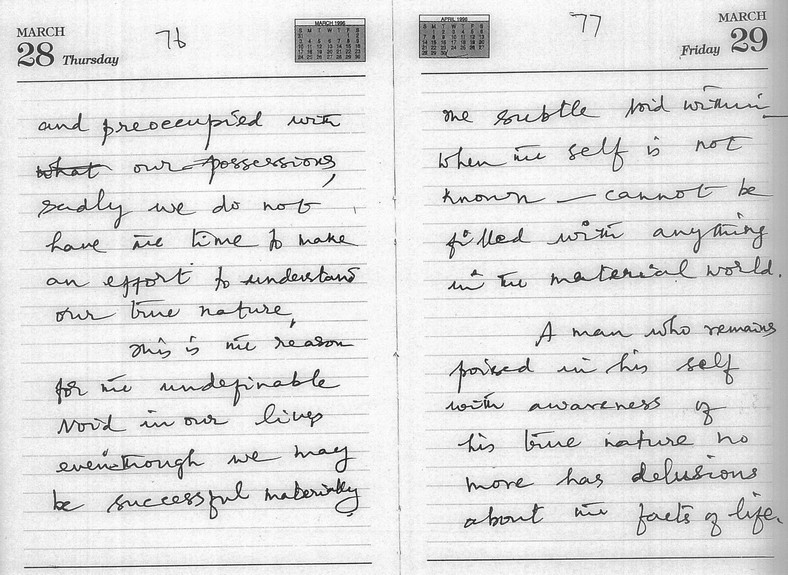 MARCH
28 Thursday
76
MARCH 1996
and preoccupied with
what our possessions,
sadly we do not
have the time to make
an effort to understand
our true nature.
This is the reason
for the undefinable
void in our lives
even though we may
be successful materially
APRIL 1996
77
MARCH
Friday 29
The subtle void within —
when the self is not
known — cannot be
filled with anything
in the material world.
A man who remains
poised in his self
with awareness of
his true nature no
more has delusions
about the facts of life.